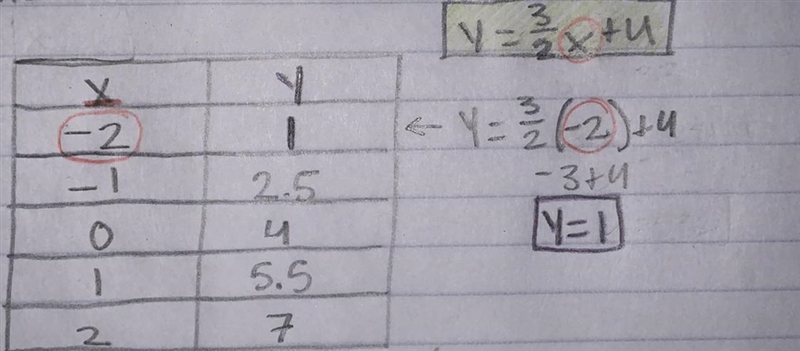 y = 3/2 x + 4
x y
-2 1 ← y = 3/2 (-2) + 4
-3 + 4
-1 2.5
y = 1
0 4
1 5.5
2 7